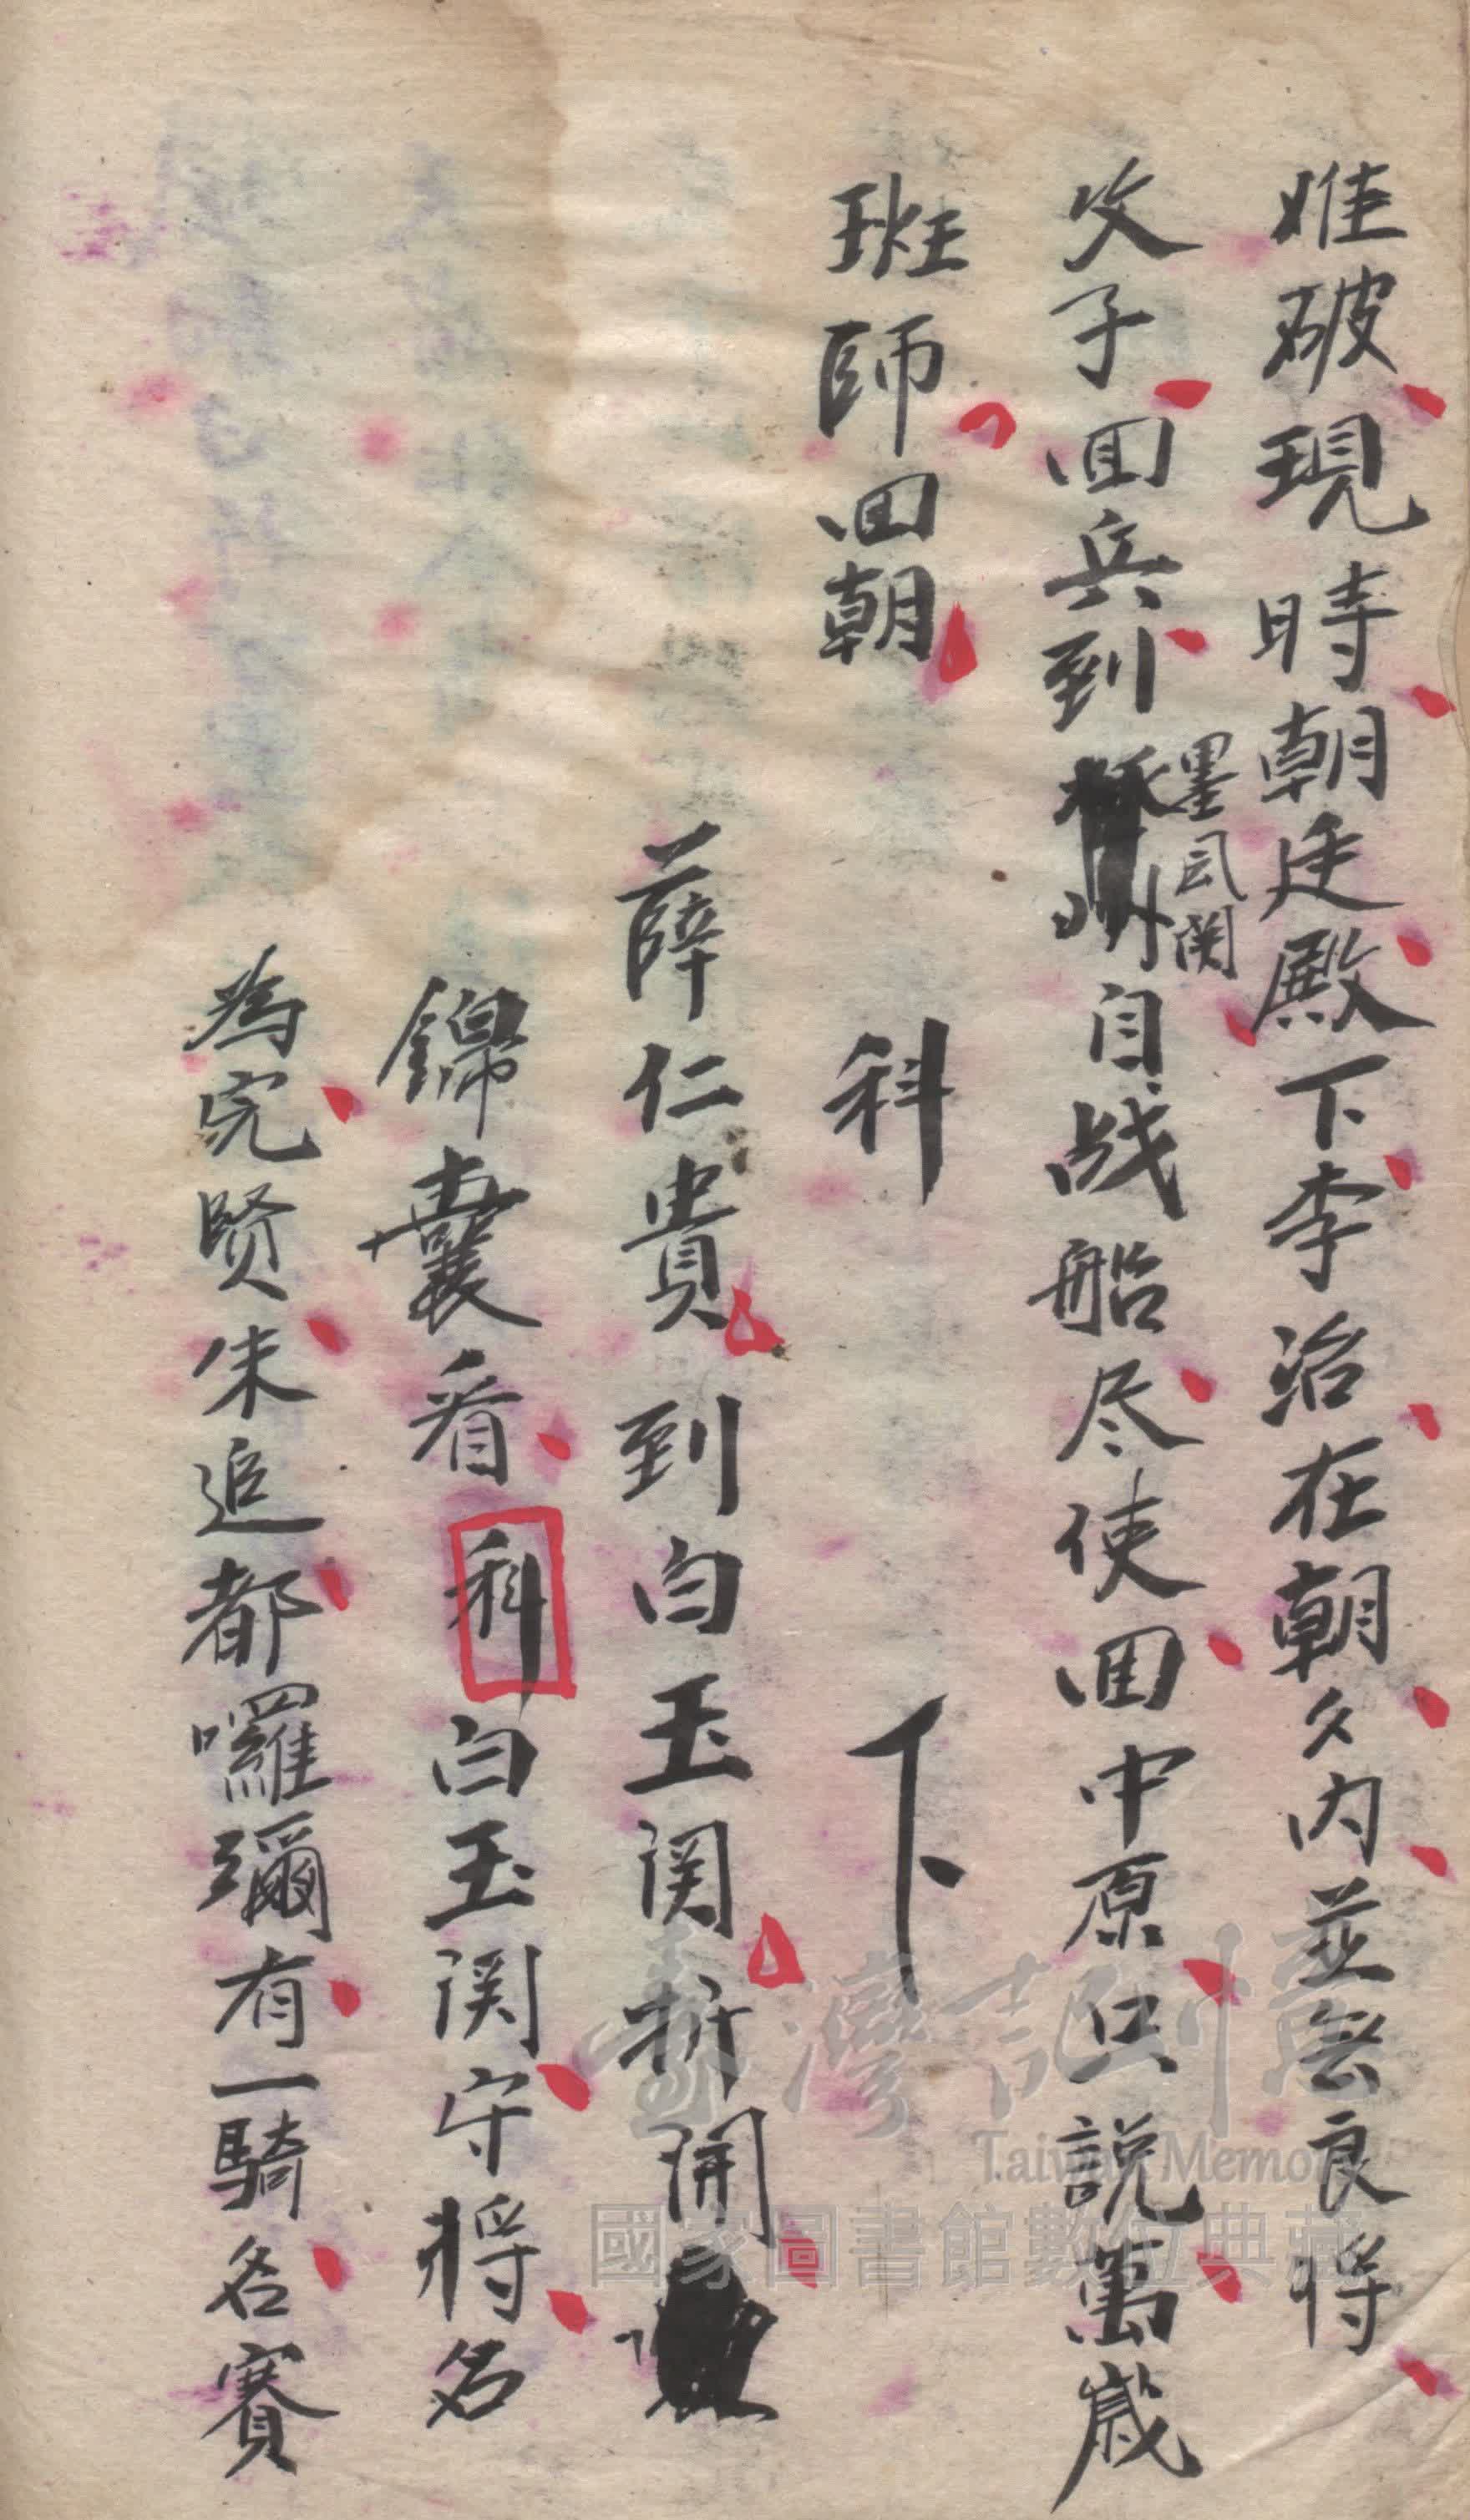 难破現時朝廷殿下李治在朝久内並無良将
父子囬兵到
墨风関
州自战船尽使囬中原只説萬歲
班師囬朝
科
下
薛仁貴到白玉関折開
錦囊看科白玉関守將名
為完賢朱追都囉彌有一騎名賽
臺灣記憶
Taiwan Memory
國家圖書館數位典藏